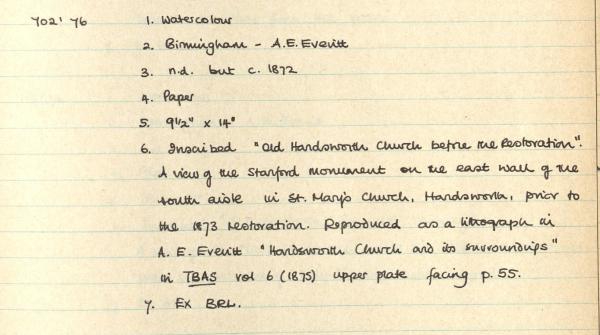 702' 76 1. Watercolour
2. Birmingham - A.E. Everitt
3. n.d. but c. 1872
4. Paper
5. 9½" x 14"
6. Inscribed "Old Handsworth Church before the Restoration".
A view of the Stanford monument on the east wall of the
south aisle in St. Mary's Church, Handsworth, prior to
the 1873 restoration. Reproduced as a lithograph in
A. E. Everitt "Handsworth Church and its surroundings"
in TBAS vol 6 (1875) upper plate facing p. 55.
7. EX BRL.